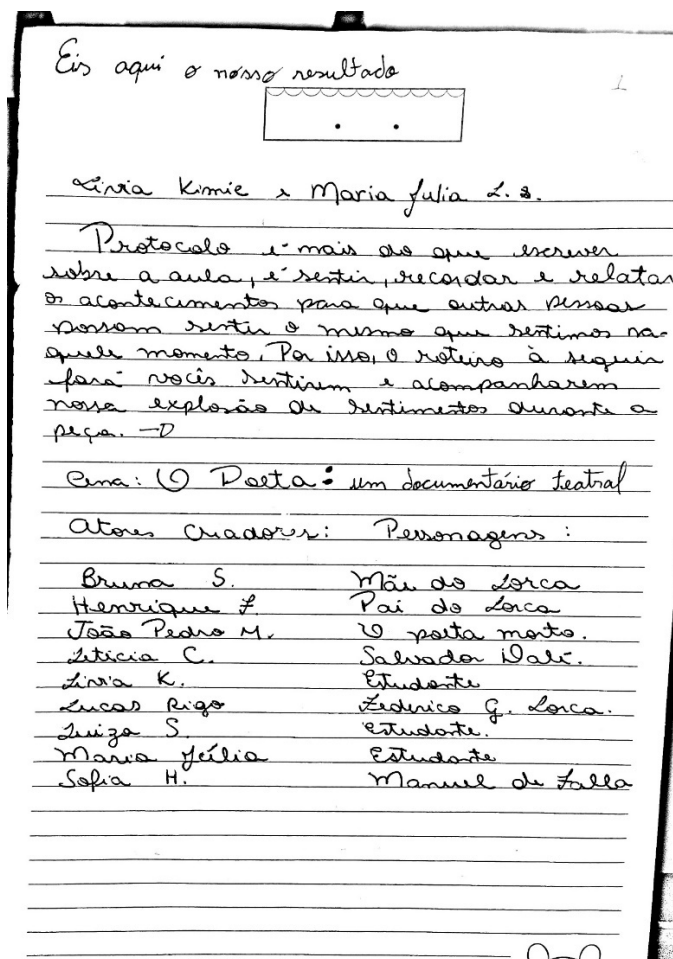 Eis aqui o nosso resultado
1
Livia Kimie e Maria Julia L. S.
Protocolo é mais do que escrever
sobre a aula, é sentir, recordar e relatar
os acontecimentos para que outras pessoas
possam sentir o mesmo que sentimos na-
quele momento. Por isso, o roteiro à seguir
fará vocês sentirem e acompanharem
nossa explosão de sentimentos durante a
peça. —D
Cena: O Poeta: um documentário teatral
Atores Criadores: Personagens:
Bruna S. Mãe do Lorca
Henrique F. Pai do Lorca
João Pedro M. O poeta morto.
Letícia C. Salvador Dalí.
Livia K. Estudante
Lucas Rigo Federico G. Lorca.
Luiza S. Estudante.
Maria Júlia Estudante
Sofia H. Manuel de Falla